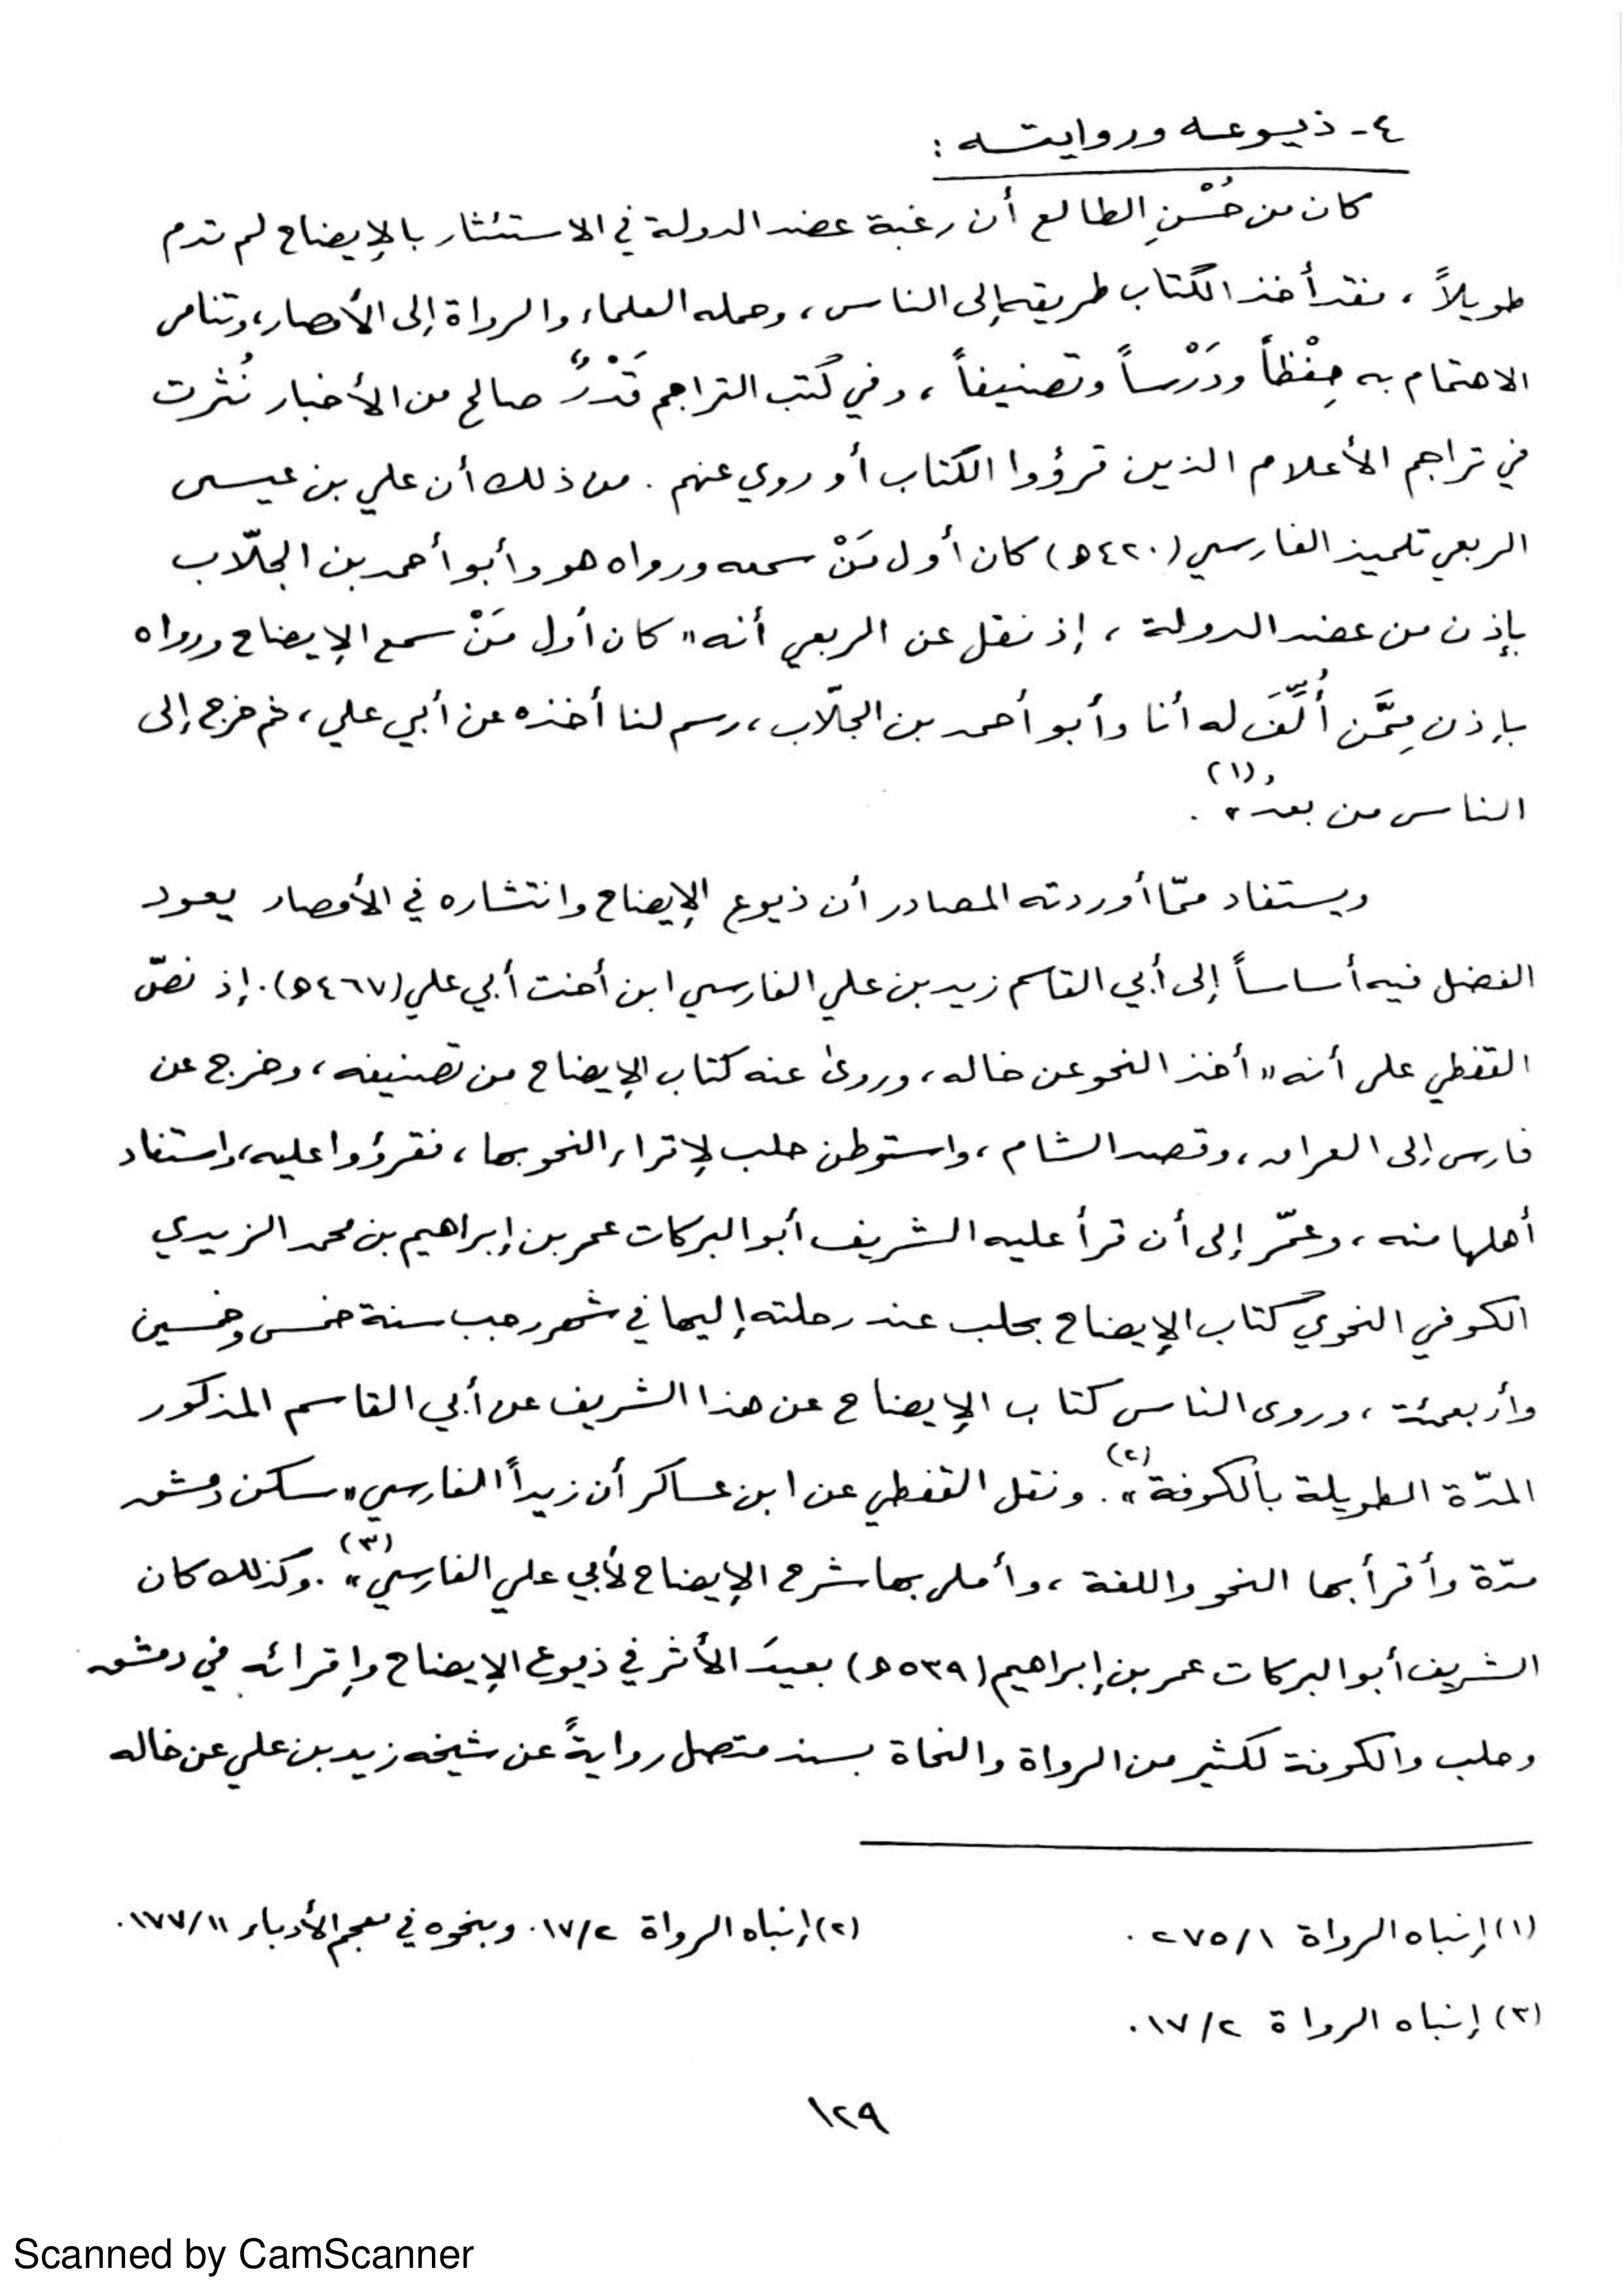 ٤- ذيوعه وروايته :
كان من حُسْنِ الطالع أن رغبة عضد الدولة في الاستئثار بالإيضاح لم تدم
طويلاً ، فقد أخذ الكتاب طريقه إلى الناس ، وحمله العلماء والرواة إلى الأمصار، وتنامى
الاهتمام به حِفْظاً ودَرْساً وتصنيفاً ، وفي كُتب التراجم قَدْرٌ صالح من الأخبار نُثرت
في تراجم الأعلام الذين قرؤوا الكتاب أو روي عنهم . من ذلك أن علي بن عيسى
الربعي تلميذ الفارسي (٤٢٠ ه) كان أول مَنْ سمعه ورواه هو وأبو أحمد بن الجلّاب
بإذن من عضد الدولة ، إذ نقل عن الربعي أنه « كان أول مَنْ سمع الإيضاح ورواه
بإذن مِمَّن أُلِّفَ له أنا وأبو أحمد بن الجلّاب ، رسم لنا أخذه عن أبي علي ، ثم خرج إلى
الناس من بعدُ »(١) .
ويستفاد ممّا أوردته المصادر أن ذيوع الإيضاح وانتشاره في الأمصار يعود
الفضل فيه أساساً إلى أبي القاسم زيد بن علي الفارسي ابن أخت أبي علي (٤٦٧ ه) . إذ نصّ
القفطي على أنه « أخذ النحو عن خاله ، وروى عنه كتاب الإيضاح من تصنيفه ، وخرج عن
فارس إلى العراق ، وقصد الشام ، واستوطن حلب لإقراء النحو بها ، فقرؤوا عليه، واستفاد
أهلها منه ، وعمّر إلى أن قرأ عليه الشريف أبو البركات عمر بن إبراهيم بن محمد الزيدي
الكوفي النحوي كتاب الإيضاح بحلب عند رحلته إليها في شهر رجب سنة خمس وخمسين
وأربعمئة ، وروى الناس كتاب الإيضاح عن هذا الشريف عن أبي القاسم المذكور
المدّة الطويلة بالكوفة »(٢) . ونقل القفطي عن ابن عساكر أن زيداً الفارسي « سكن دمشق
مدّة وأقرأ بها النحو واللغة ، وأملى بها شرح الإيضاح لأبي علي الفارسي »(٣) . وكذلك كان
الشريف أبو البركات عمر بن إبراهيم (٥٣٩ ه) بعيدَ الأثر في ذيوع الإيضاح وإقرائه في دمشق
وحلب والكوفة لكثير من الرواة والنحاة بسند متصل روايةً عن شيخه زيد بن علي عن خاله
(١) إنباه الرواة ٢٧٥/١ .
(٢) إنباه الرواة ١٧/٢ . وبنحوه في معجم الأدباء ١٧٧/١١ .
(٣) إنباه الرواة ١٧/٢ .
١٢٩
Scanned by CamScanner